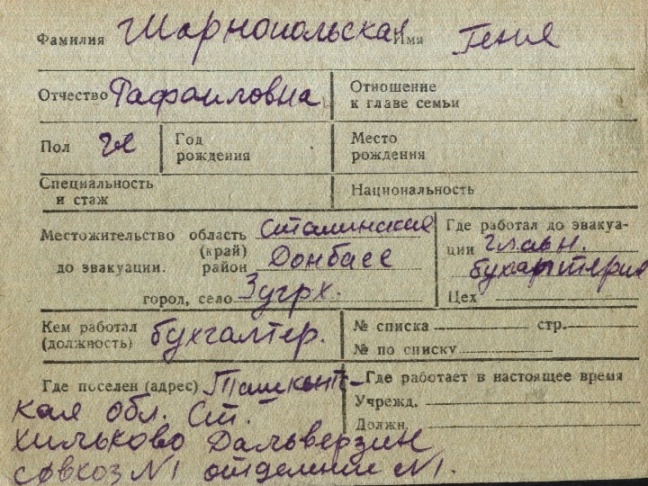 Фамилия Шарнопольская Имя Геня
Отчество Рафаиловна Отношение
к главе семьи
Пол Год
рождения Место
рождения
Специальность
и стаж Национальность
Местожительство область Сталинская Где работал до эвакуа-
(край) ции главн.
до эвакуации. район Донбасс бухгартерия
город, село Зугрх. Цех
Кем работал
(должность) бухгалтер. № списка стр.
№ по списку
Где поселен (адрес) Ташкент- Где работает в настоящее время
кая обл. Ст. Учрежд.
Хильково Дальверзин Должн.
совхоз №1 отделение №1.